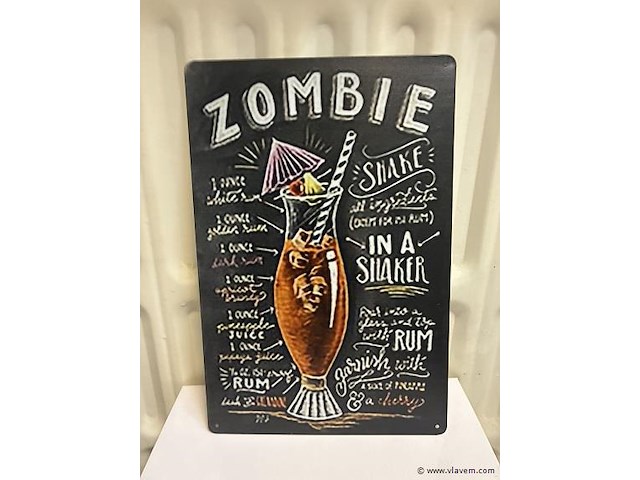 ZOMBIE
1 OUNCE
white rum
1 OUNCE
golden rum
1 OUNCE
dark rum
1 OUNCE
apricot
brandy
1 OUNCE
pineapple
JUICE
1 OUNCE
papaya juice
RUM
dash
SHAKE
all ingredients
RUM)
IN A
SHAKER
Pour into a
glass and top
with RUM
garnish with
& a cherry
© www.vlavem.com